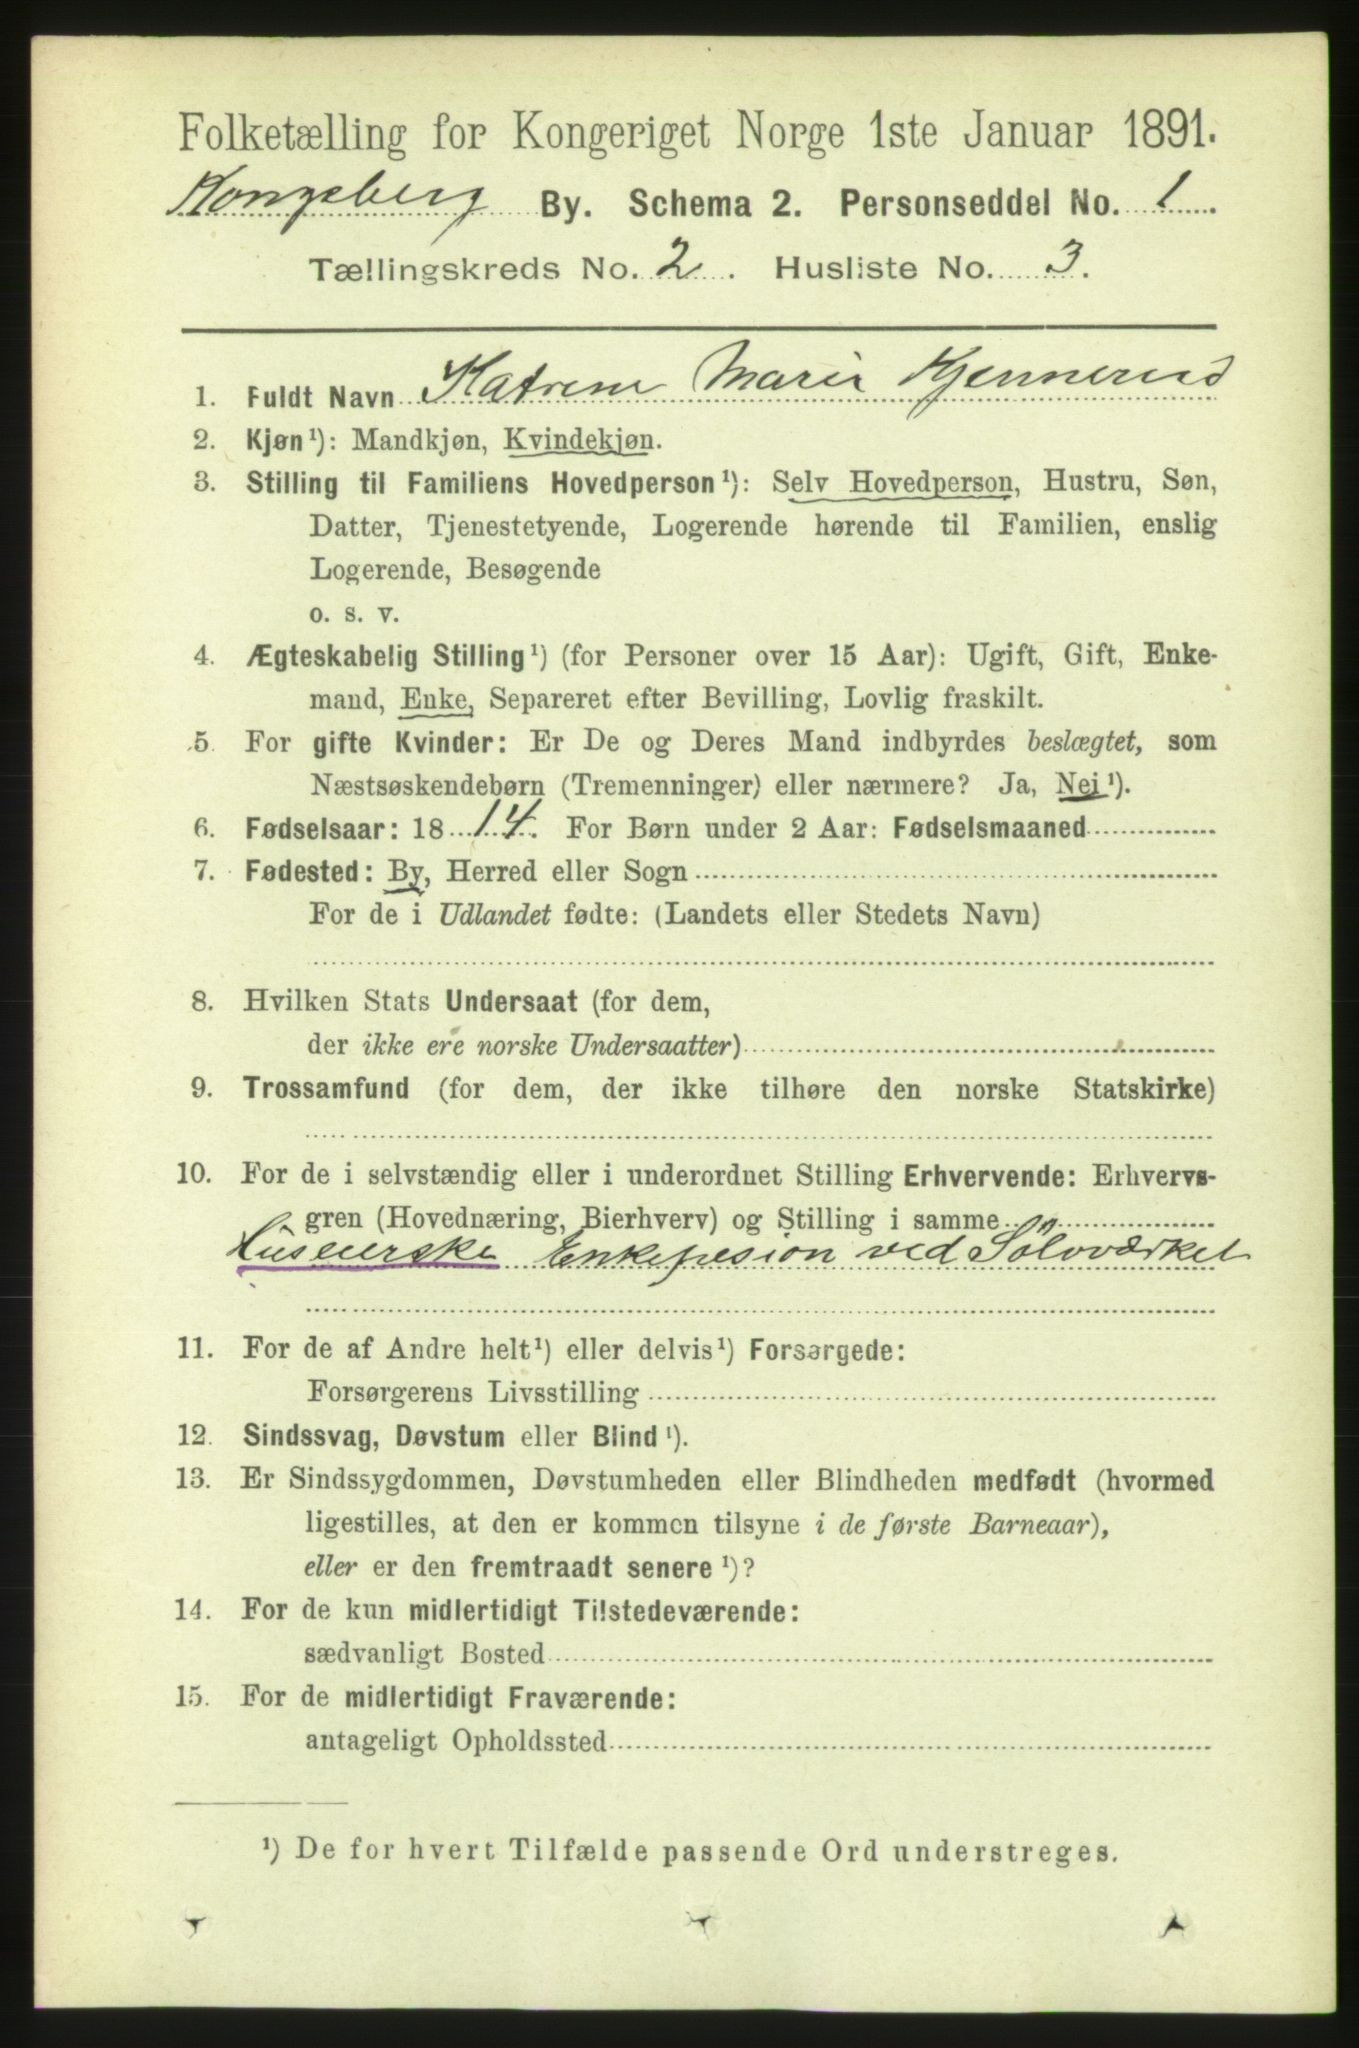 Folketælling for Kongeriget Norge 1ste Januar 1891.
Kongsberg By. Schema 2. Personseddel No. 1.
Tællingskreds No. 2. Husliste No. 3.
1. Fuldt Navn Katrine Marie Kjennerud
2. Kjøn¹): Mandkjøn, Kvindekjøn.
3. Stilling til Familiens Hovedperson¹): Selv Hovedperson, Hustru, Søn,
Datter, Tjenestetyende, Logerende hørende til Familien, enslig
Logerende, Besøgende
o. s. v.
4. Ægteskabelig Stilling¹) (for Personer over 15 Aar): Ugift, Gift, Enke-
mand, Enke, Separeret efter Bevilling, Lovlig fraskilt.
5. For gifte Kvinder: Er De og Deres Mand indbyrdes beslægtet, som
Næstsøskendebørn (Tremenninger) eller nærmere? Ja, Nei¹).
6. Fødselsaar: 1814. For Børn under 2 Aar: Fødselsmaaned
7. Fødested: By, Herred eller Sogn
For de i Udlandet fødte: (Landets eller Stedets Navn)
8. Hvilken Stats Undersaat (for dem,
der ikke ere norske Undersaatter)
9. Trossamfund (for dem, der ikke tilhøre den norske Statskirke)
10. For de i selvstændig eller i underordnet Stilling Erhvervende: Erhvervs-
gren (Hovednæring, Bierhverv) og Stilling i samme
Huseierske Enkepesion ved Sölvværket
11. For de af Andre helt¹) eller delvis¹) Forsørgede:
Forsørgerens Livsstilling
12. Sindssvag, Døvstum eller Blind¹).
13. Er Sindssygdommen, Døvstumheden eller Blindheden medfødt (hvormed
ligestilles, at den er kommen tilsyne i de første Barneaar),
eller er den fremtraadt senere¹)?
14. For de kun midlertidigt Tilstedeværende:
sædvanligt Bosted
15. For de midlertidigt Fraværende:
antageligt Opholdssted
¹) De for hvert Tilfælde passende Ord understreges.